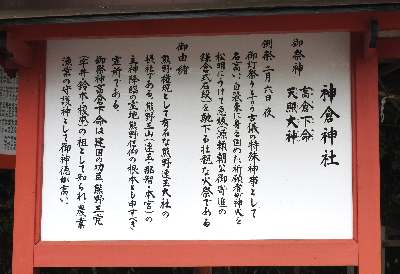 神倉神社
御祭神 高倉下命
天照大神
例祭 二月六日夜
御灯祭りと云う古儀の特殊神事として
名高い、白装束に身を固めた祈願者が神火を
松明にうけて急坂(源頼朝公御寄進の
鎌倉式石段)を馳下る壮観な火祭である
御由緒
熊野権現として有名な熊野速玉大社の
摂社である。熊野三山(速玉・那智・本宮)の
主神降臨の霊地熊野信仰の根本とも申すべき
霊所である
御祭神高倉下命は建国の功臣熊野三党
(宇井・鈴木・榎本)の祖として知られ農業
漁業の守護神として御神徳が高い、